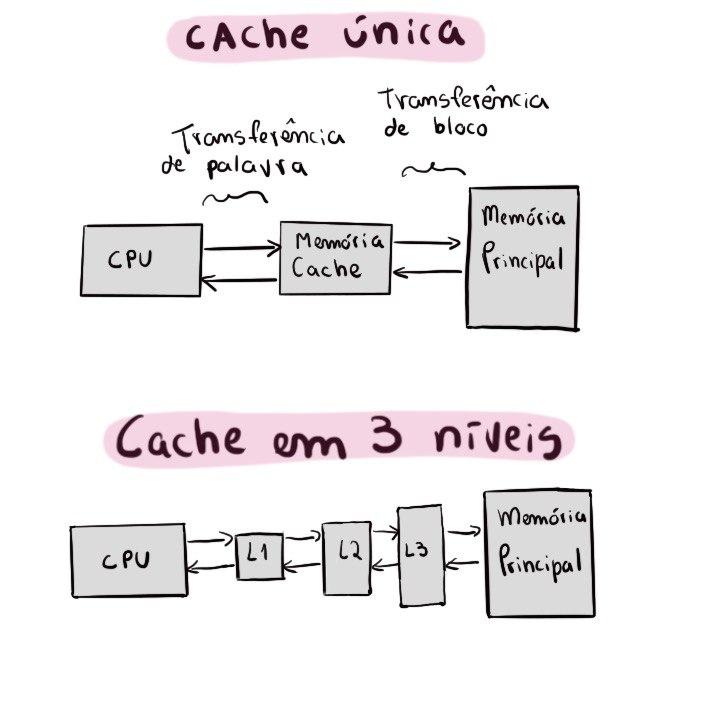 CAche única
Transferência
de palavra
Transferência
de bloco
CPU
Memória
Cache
Memória
Principal
Cache em 3 níveis
CPU
L1
L2
L3
Memória
Principal